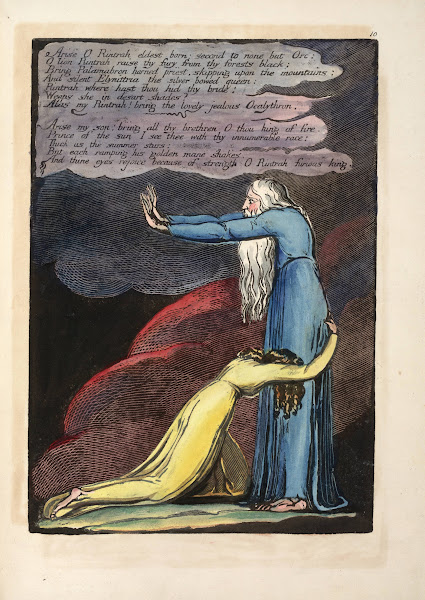 10
Arise O Rintrah eldest born: second to none but Orc:
O lion Rintrah raise thy fury from thy forests black:
Bring Palamabron horned priest, skipping upon the mountains:
And silent Elynittria the silver bowed queen:
Rintrah where hast thou hid thy bride!
Weeps she in desart shades?
Alas my Rintrah! bring the lovely jealous Ocalythron.
Arise my son! bring all thy brethren O thou king of fire.
Prince of the sun I see thee with thy innumerable race:
Thick as the summer stars:
But each ramping his golden mane shakes,
And thine eyes rejoice because of strength O Rintrah furious king.